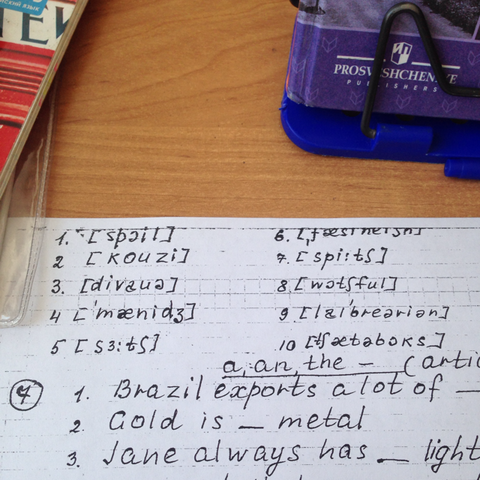 PROSVESHCHENIYE
PUBLISHERS
1. [spɔil]
2 [kouzi]
3. [divauə]
4 ['mænidʒ]
5 [sɜ:tʃ]
7. [spi:tʃ]
8 [wɔtʃful]
9 [lai'breəriən]
10 [tʃætəbɔks]
a, an, the –
7
1. Brazil exports a lot of _
2. Gold is _ metal
3. Jane always has _ light